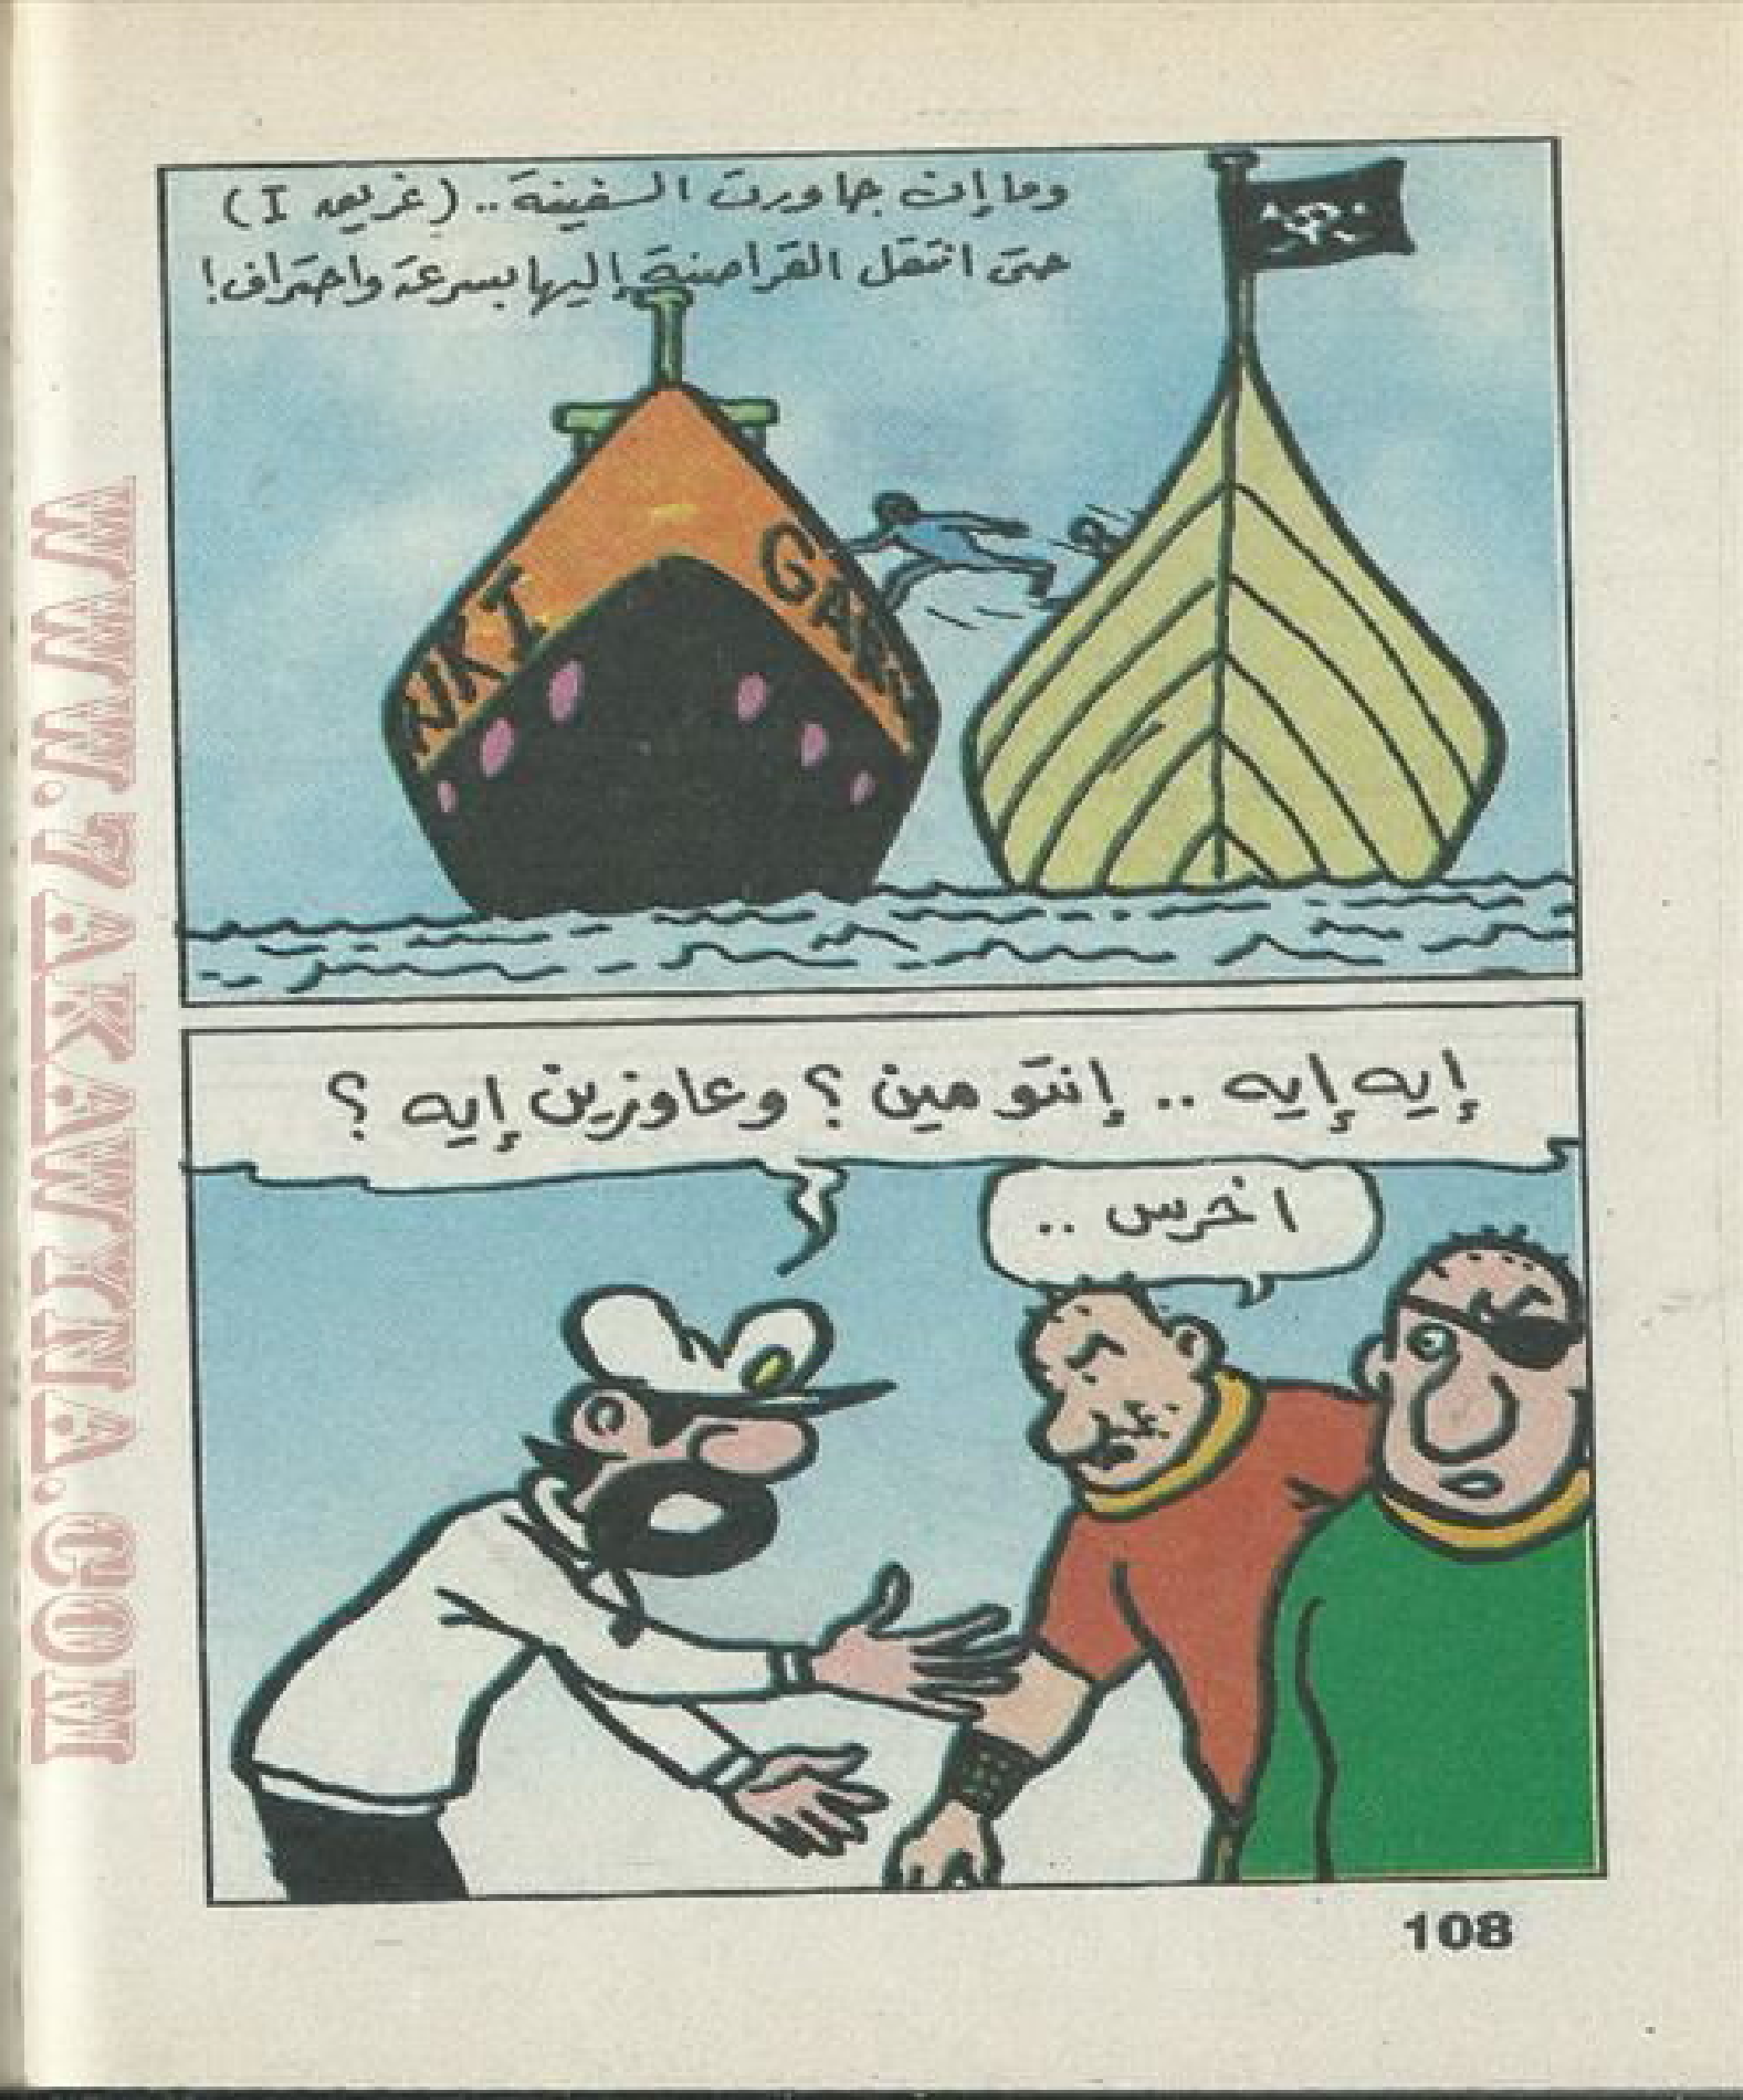 وما إن جاورت السفينة .. (غريمه I)
حتى انتقل القراصنة إليها بسرعة واحتراف !
GAW
NKI
إيه إيه .. إنتو مين ؟ وعاوزين إيه ؟
اخرس ..
108
WWW.7AKAWYNA.COM